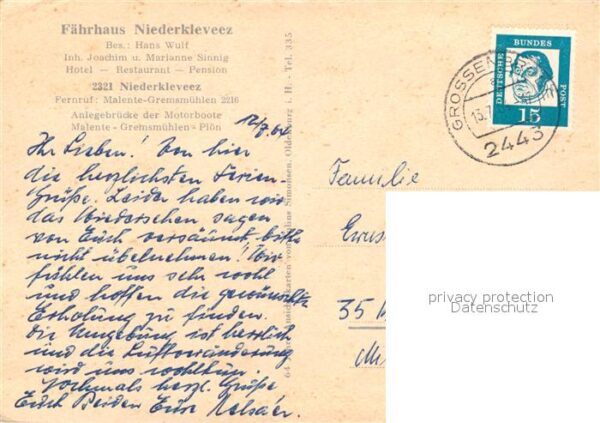 Fährhaus Niederkleveez
Bes.: Hans Wulf
Inh. Joachim u. Marianne Sinnig
Hotel — Restaurant — Pension
2321 Niederkleveez
Fernruf: Malente-Gremsmühlen 2216
Anlegebrücke der Motorboote
Malente - Gremsmühlen - Plön
12/7.64
Ihr Lieben! Von hier
die herzlichsten Ferien-
Grüße. Leider haben wir
das Wiedersehen sagen
von Euch versäumt, bitte
nicht übelnehmen! Wir
fühlen uns sehr wohl
und hoffen die gewünschte
Erholung zu finden.
Die Umgebung ist herrlich
und die Luftveränderung
wird uns wohltun.
Nochmals herzl. Grüße
Euch Beiden Eure
Simonsen, Oldenburg i. H. - Tel. 335
Familie
35
DEUTSCHE
BUNDES
POST
15
GROSSEN
13.
2443
privacy protection
Datenschutz